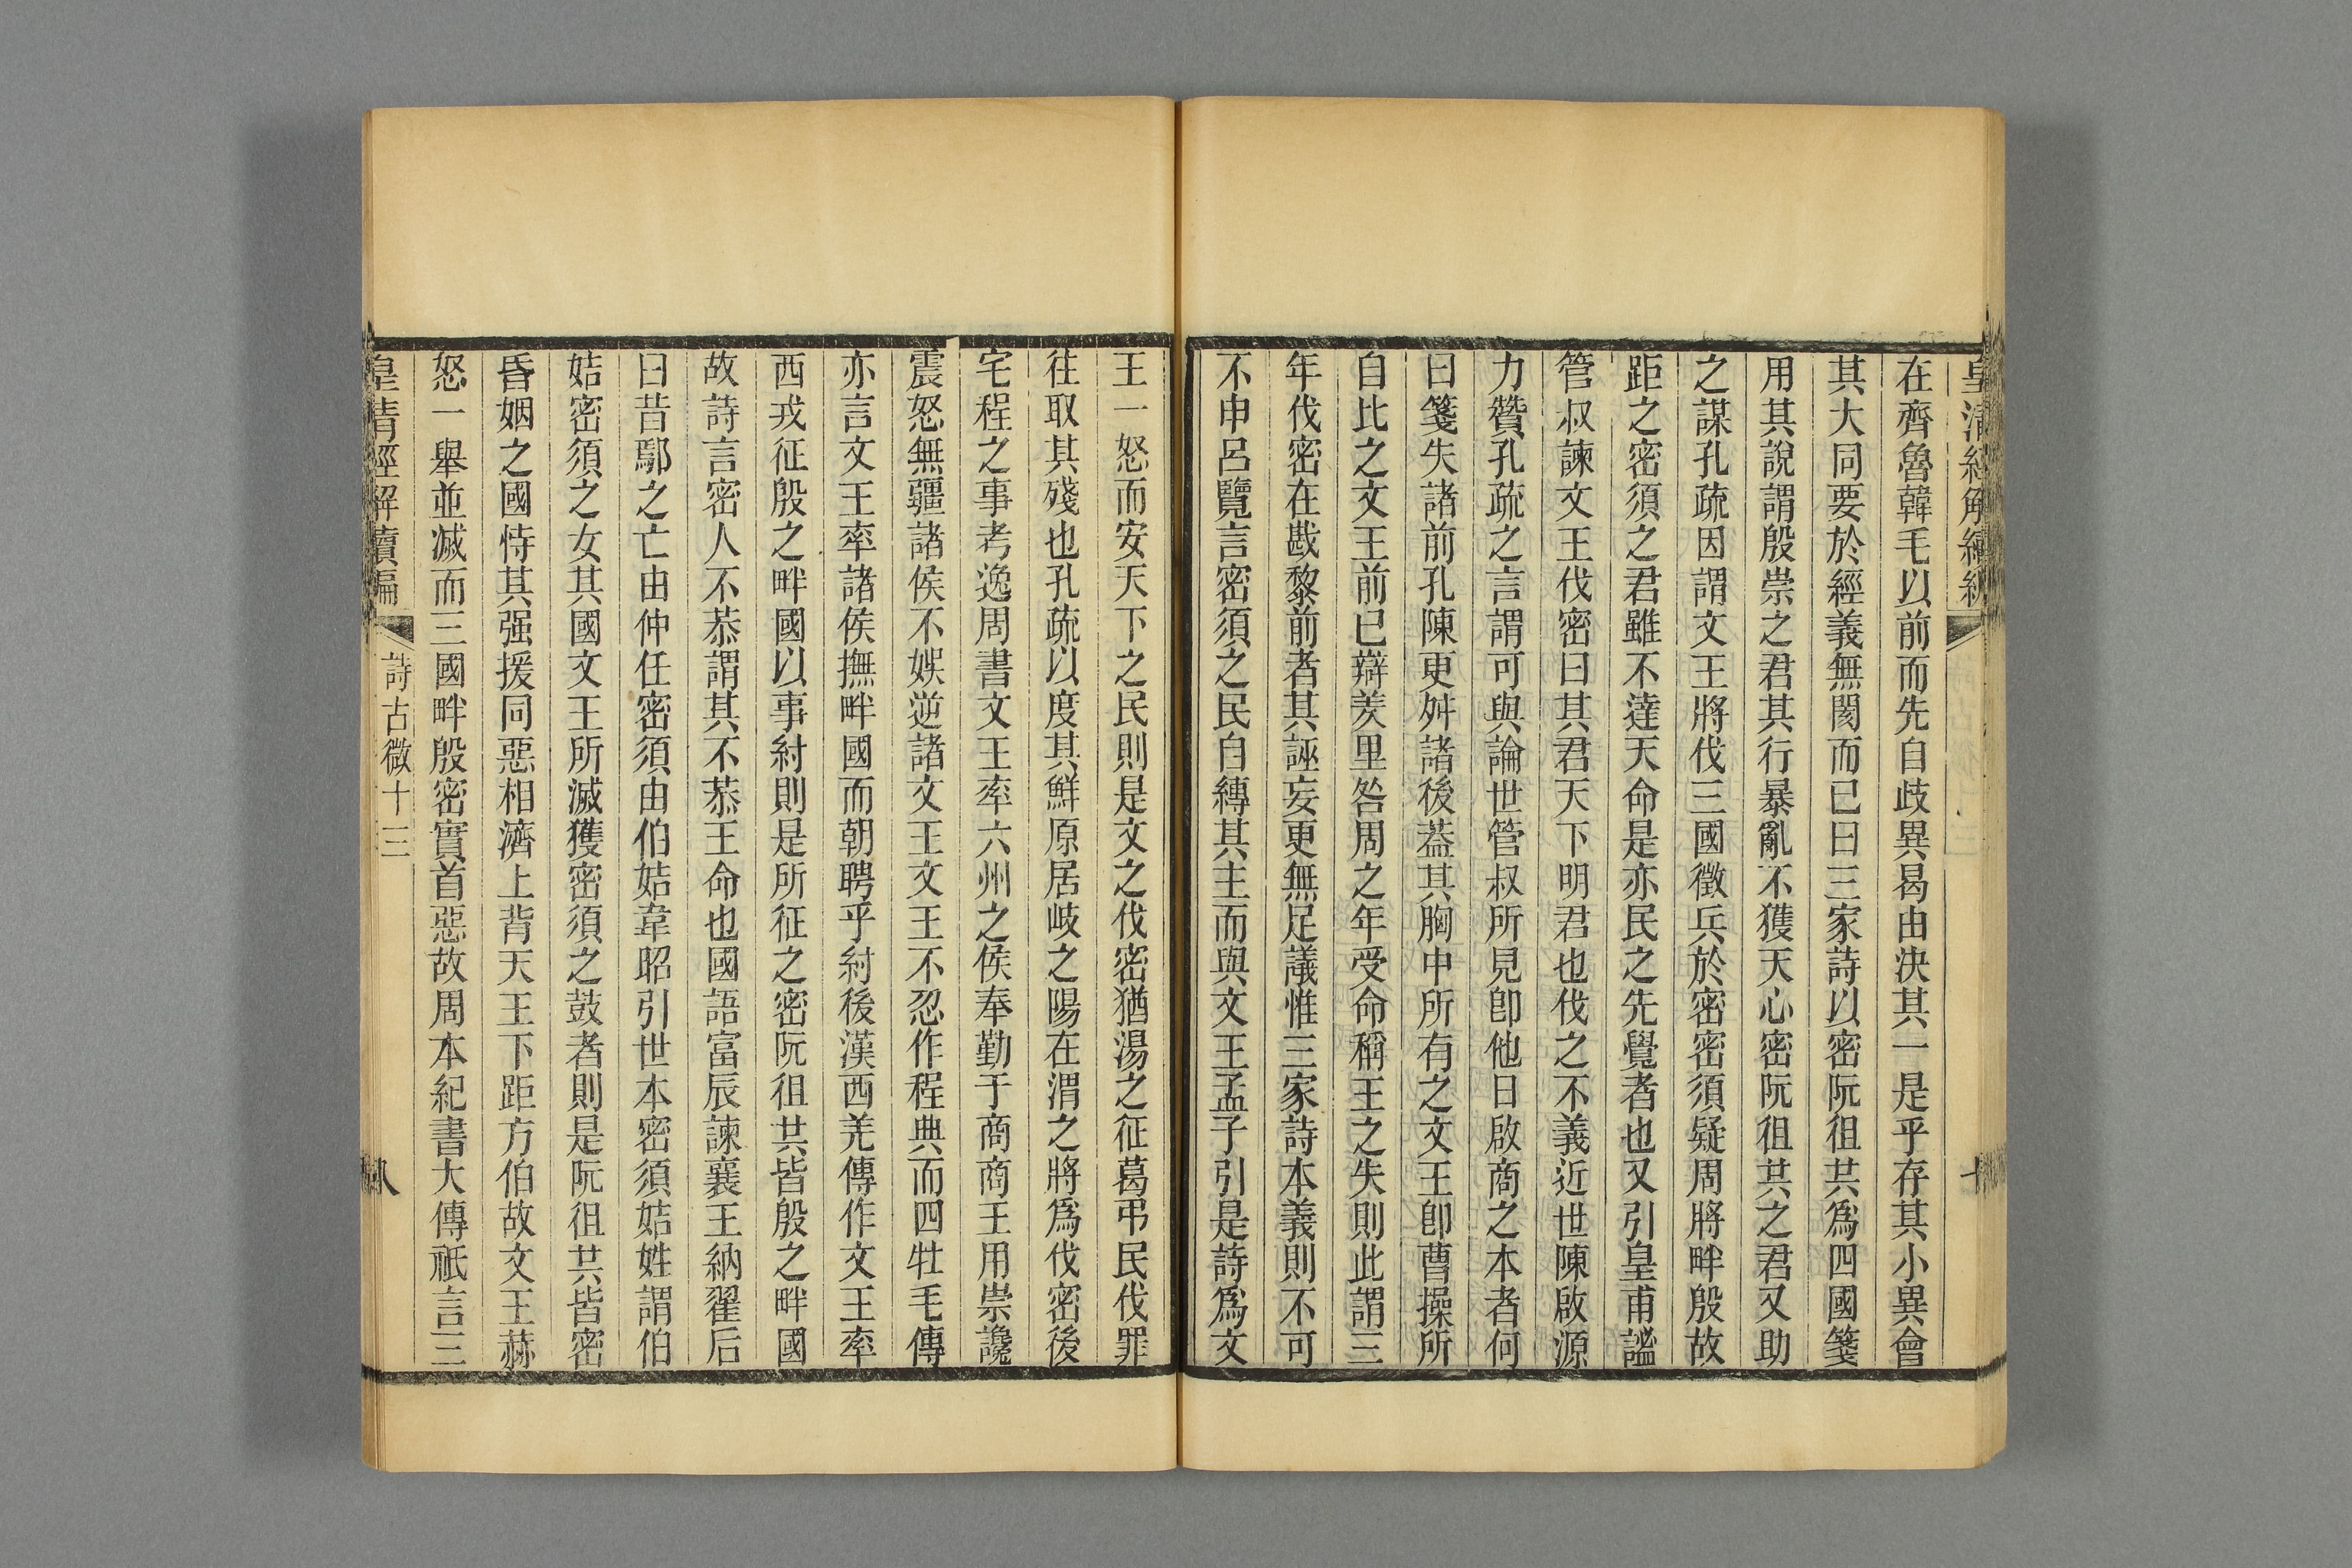 皇清經解續編
在齊魯韓毛以前而先自歧異曷由決其一是乎存其小異會
其大同要於經義無閡而已曰三家詩以密阮徂共爲四國箋
用其說謂殷崇之君其行暴亂不獲天心密阮徂共之君又助
之謀孔疏因謂文王將伐三國徵兵於密密須疑周將畔殷故
距之密須之君雖不達天命是亦民之先覺者也又引皇甫謐
管叔諫文王伐密曰其君天下明君也伐之不義近世陳啟源
力贊孔疏之言謂可與論世管叔所見卽他日啟商之本者何
曰箋失諸前孔陳更舛諸後葢其胸中所有之文王卽曹操所
自比之文王前已辯羑里咎周之年受命稱王之失則此謂三
年伐密在戡黎前者其誣妄更無足議惟三家詩本義則不可
不申呂覽言密須之民自縛其主而與文王孟子引是詩爲文
王一怒而安天下之民則是文之伐密猶湯之征葛弔民伐罪
往取其殘也孔疏以度其鮮原居岐之陽在渭之將爲伐密後
宅程之事考逸周書文王率六州之侯奉勤于商商王用崇讒
震怒無疆諸侯不娛逆諸文王文王不忍作程典而四牡毛傳
亦言文王率諸侯撫畔國而朝聘乎紂後漢西羌傳作文王率
西戎征殷之畔國以事紂則是所征之密阮徂共皆殷之畔國
故詩言密人不恭謂其不恭王命也國語富辰諫襄王納翟后
曰昔鄢之亡由仲任密須由伯姞韋昭引世本密須姞姓謂伯
姞密須之女其國文王所滅獲密須之鼓者則是阮徂共皆密
昏姻之國恃其强援同惡相濟上背天王下距方伯故文王赫
怒一舉並滅而三國畔殷密實首惡故周本紀書大傳祇言三
皇清經解續編
詩古微十三
八